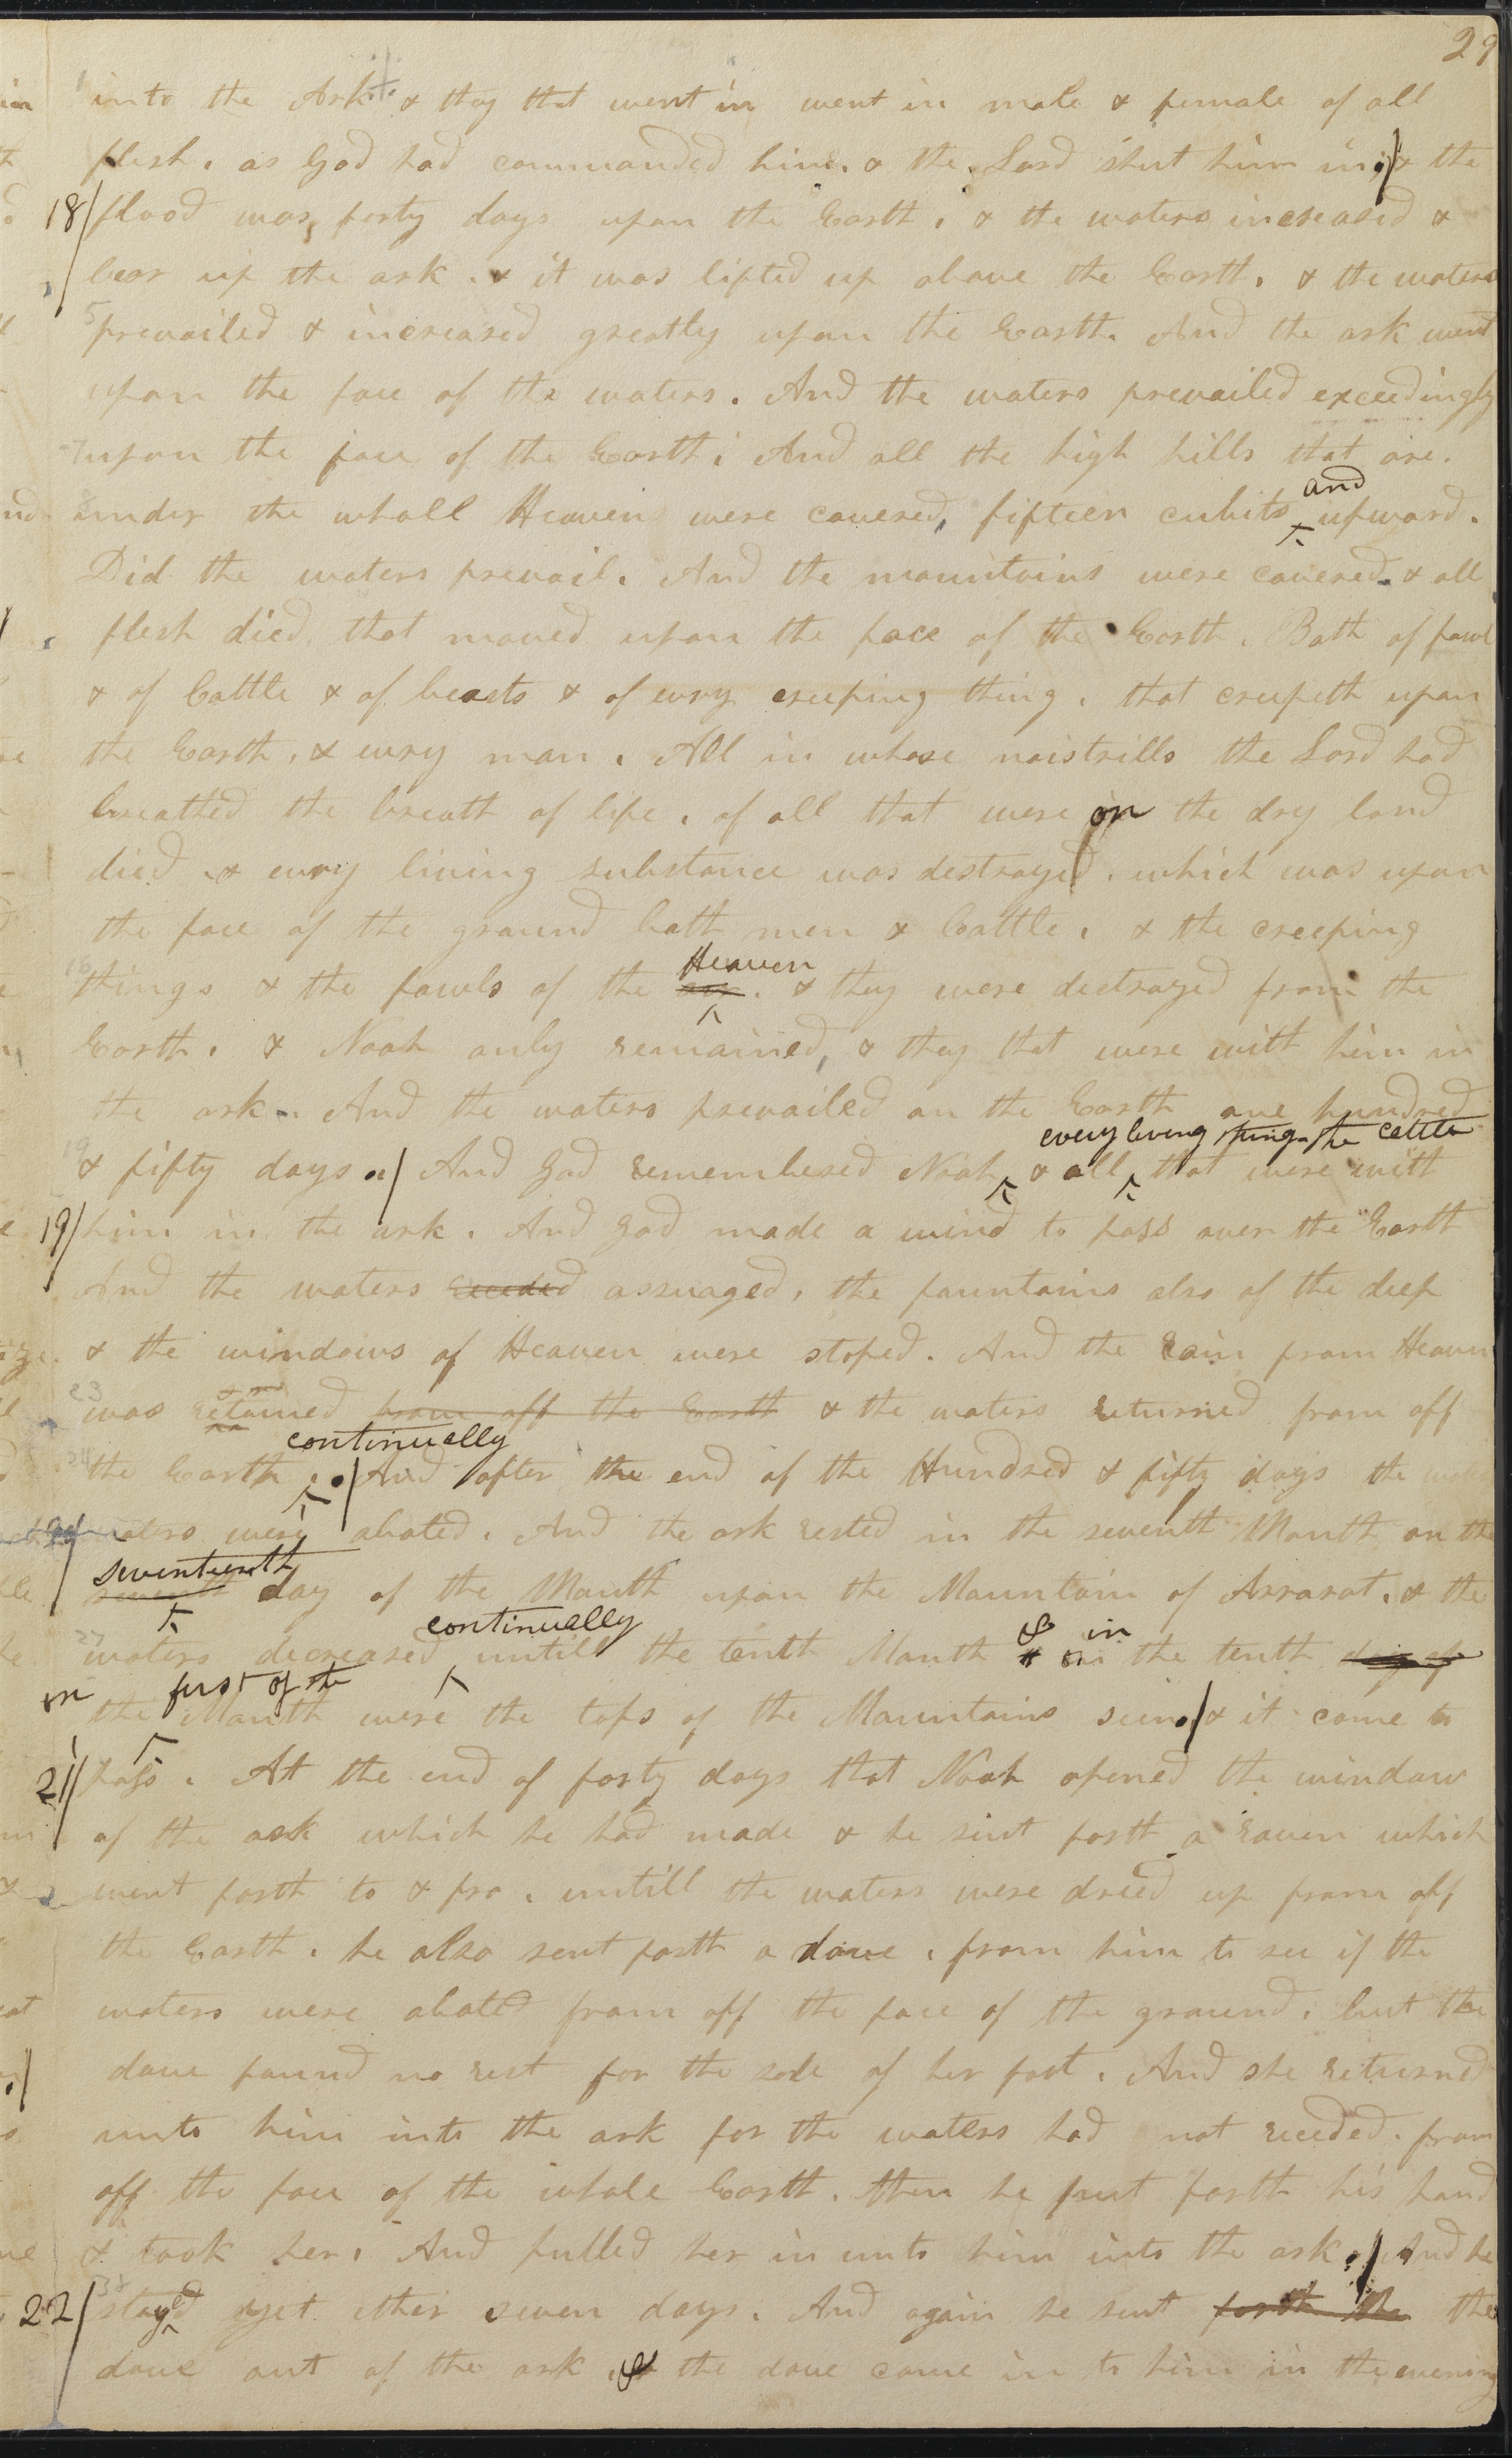 29
into the Ark & they that went in went in male & female of all
flesh. as God had commanded him. & the Lord shut him in. & the
18 flood was forty days upon the Earth. & the waters increased &
bear up the ark. & it was lifted up above the Earth. & the waters
5 prevailed & increased greatly upon the Earth. And the ark went
upon the face of the waters. And the waters prevailed exceedingly
7 upon the face of the Earth; And all the high hills that are.
and
under the wholl Heaven were covered, fifteen cubits upward.
Did the waters prevail. And the mountains were covered. & all
flesh died. that moved upon the face of the Earth. Both of fowl
& of Cattle & of beasts & of evry creeping thing. that creepeth upon
the Earth. & evry man. All in whose noistrills the Lord had
breathed the breath of life. of all that were on the dry land
died. & evry living substance was destroyed. which was upon
the face of the ground both men & Cattle. & the creeping
Heaven
16 things & the fowls of the air. & they were destroyed from the
Earth. & Noah only remained, & they that were with him in
the ark. And the waters prevailed on the Earth one hundred
every living thing. the cattle
19 & fifty days. And God remembered Noah & all that were with
19 him in the ark. And God made a wind to pass over the Earth
And the waters receded assuaged. the fountains also of the deep
& the windows of Heaven were stoped. And the rain from Heaven
23 was retained from off the Earth & the waters returned from off
continually
the Earth. And after the end of the Hundred & fifty days the
waters were abated. And the ark rested in the seventh Month on the
seventeenth
seventh day of the Month upon the Mountain of Arrarat. & the
continually & in
27 waters decreased untill the tenth Month & on the tenth day of
in first of the
the Month were the tops of the Mountains seen. & it came to
21 pass. At the end of forty days that Noah opened the window
of the ark which he had made & he sent forth a raven which
went forth to & fro. untill the waters were dried up from off
the Earth. he also sent forth a dove. from him to see if the
waters were abated from off the face of the ground. but the
dove found no rest for the sole of her foot. And she returned
unto him into the ark for the waters had not receeded. from
off the face of the whole Earth. then he put forth his hand
& took her. And pulled her in unto him into the ark. And he
22 stayed yet other seven days. And again he sent forth the the
dove out of the ark. & the dove came in to him in the evening